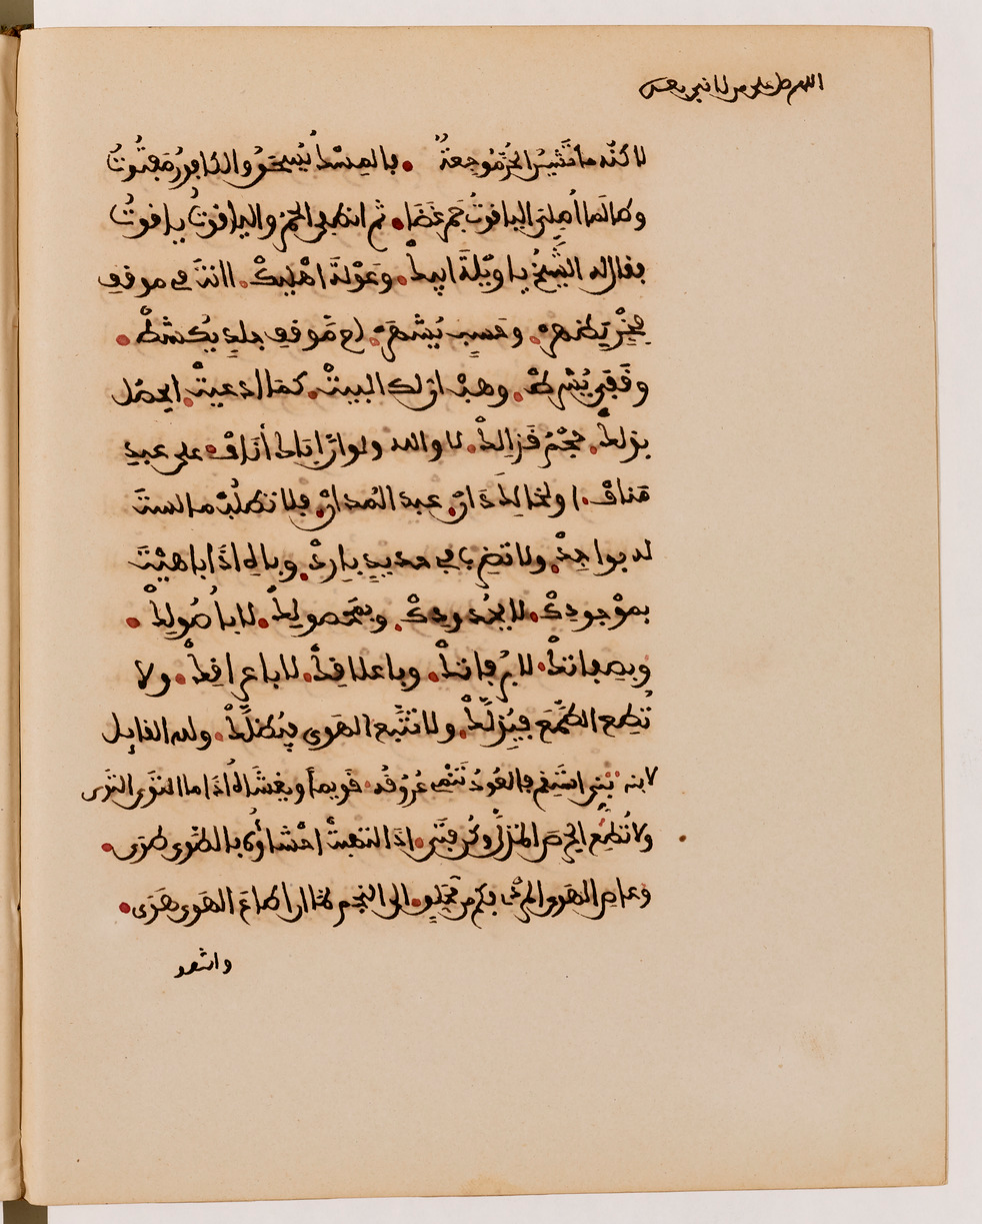 اللهم صل على من لا نبي بعده
لاكنّه ما تَشينُ الحُرَّ مُوجعةٌ . فالمِسْكُ يُسْحَقُ والكافورُ مَفْتُوتُ
وطالَما أُصْلِيَ الياقوتُ جَمرَ غَضًا . ثم انطفى الجمرُ والياقوتُ ياقوتُ
فقال له الشّيخُ يا ويْلَةَ ابيكْ . وعَوْلةَ اهْلِيكْ . اانتَ في موقفِ
فخْرٍ يَظهرْ . وحَسبٍ يُشْهَرْ . ام مَوقفِ جلدٍ يُكشطْ .
وقَفًى يُشْرطْ . وهبْ ان لك البيتْ . كمَا ادعيتْ . ايحصُل
بذلكْ . حجْمُ قَذالكْ . لا والله ولو انّ اباك أنَافْ . على عبدِ
مَنافْ . او لخالِكَ دَانْ . عبد المَدانْ . فلا تطلُبْ ما لستَ
له بواجِدْ . ولا تضرِبْ في حديدٍ بارِدْ . وباهِ اذَا باهيْتَ
بموْجودِكْ . لا بجُدودِكْ . وبمَحصولِكْ . لا باُصُولِكْ .
وبصِفاتكْ . لا برُفاتكْ . وباعلاقِكْ . لا باعراقِكْ . ولا
تُطِع الطَّمَع فيُذِلَّكْ . ولا تتَّبِع الهَوى فيُضلَّكْ . ولله القايل
لابنه بُنَي استَقِم فالعُودُ تَنْمِى عُروقُه . قَويماً ويغشَاهُ اذَا ما التَوَى التوَى
ولا تُطِع الحِرصَ المُذِلَّ وكُن فتًى . اذَا التهبتْ احْشاؤُهُ بالطَّوى طوَى .
وعاصِ الهَوى المُرْدِي فكم من مُحَلِّقٍ . الى النجمِ لمّا ان اطاعَ الهَوى هَوَى .
واسْعِف